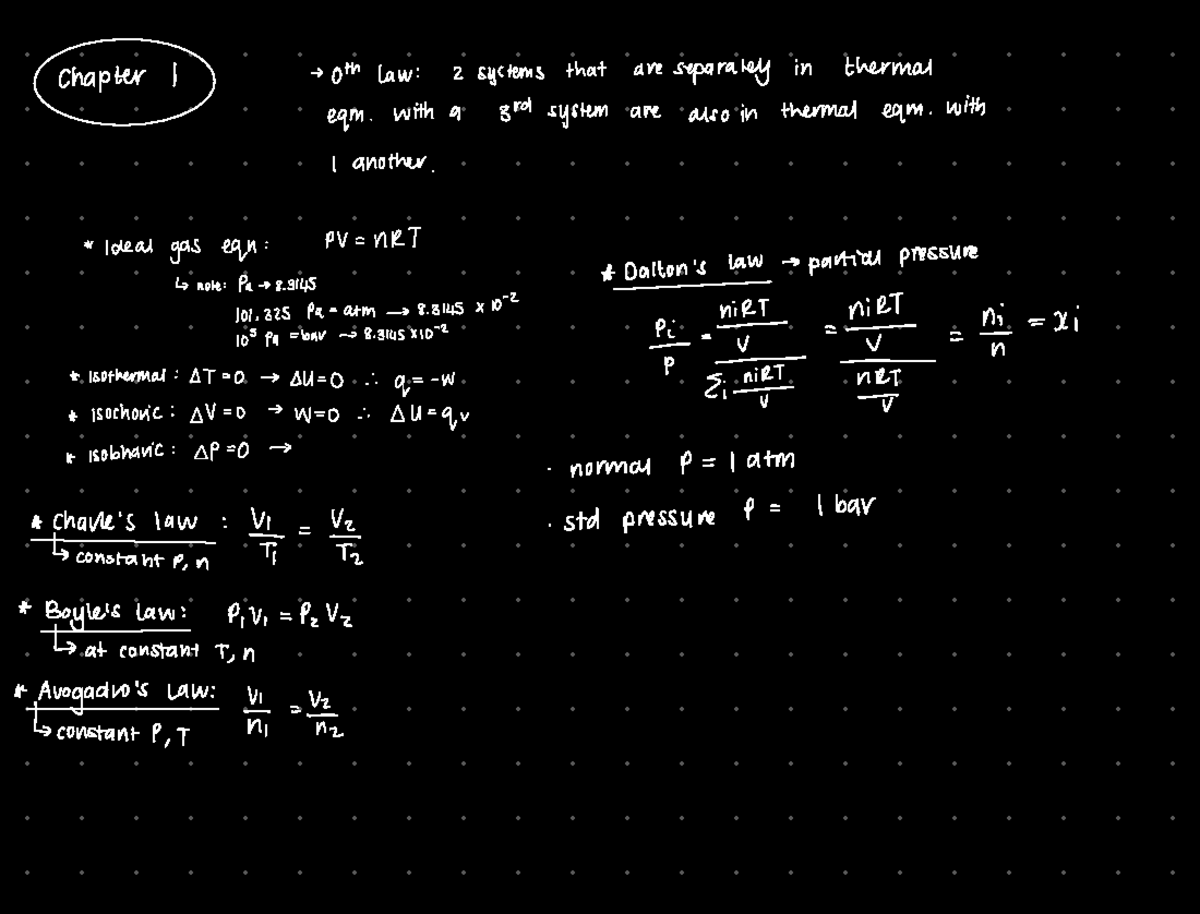 Chapter 1
→ 0th law: 2 systems that are separately in thermal
eqm. with a 3rd system are also in thermal eqm. with
1 another.
* Ideal gas eqn: PV = nRT
↳ note: Pa → 8.3145
101.325 Pa = atm → 8.3145 × 10⁻²
10⁵ Pa = bar → 8.3145 × 10⁻²
* Isothermal: ΔT = 0 → ΔU = 0 ∴ q = -w
* Isochoric: ΔV = 0 → W = 0 ∴ ΔU = qv
* Isobharic: ΔP = 0 →
* Charle's law: V1/T1 = V2/T2
↳ constant P, n
* Boyle's law: P1V1 = P2V2
↳ at constant T, n
* Avogadro's Law: V1/n1 = V2/n2
↳ constant P, T
* Dalton's law → partial pressure
Pi/P = (niRT/V)/(Σi niRT/V) = (niRT/V)/(nRT/V) = ni/n = xi
· normal P = 1 atm
· std pressure P = 1 bar